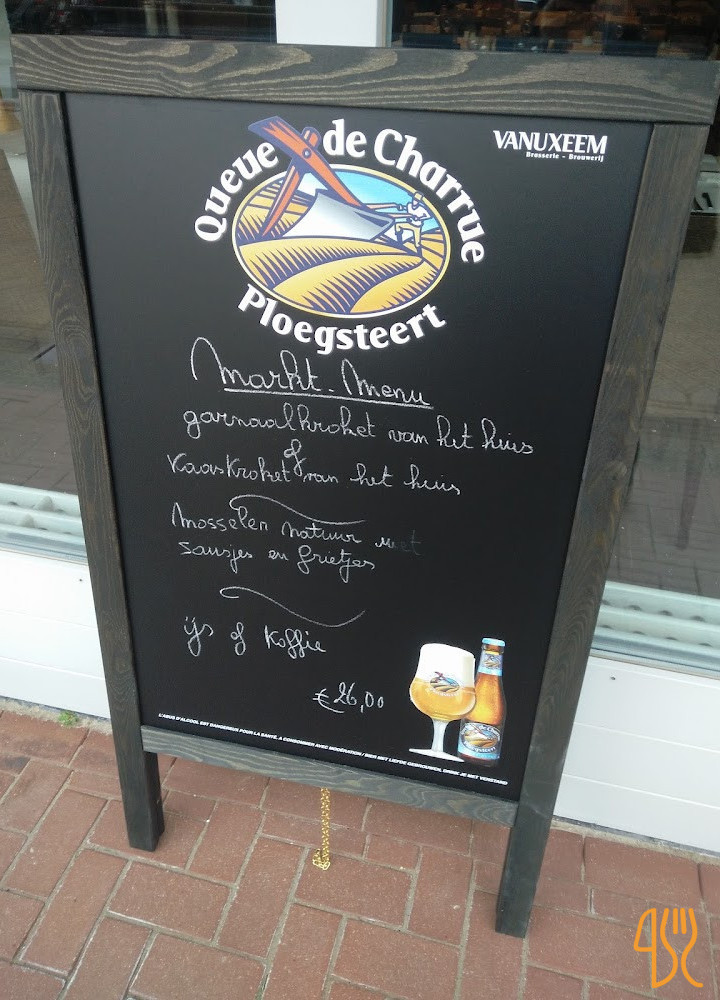 Queue de Charrue
Ploegsteert
VANUXEEM
Brasserie - Brouwerij
Markt-Menu
garnaalkroket van het huis
of
Kaaskroket van het huis
Mosselen natuur met
sausjes en frietjes
ijs of Koffie
€26,00
L'ABUS D'ALCOOL EST DANGEREUX POUR LA SANTÉ, A CONSOMMER AVEC MODÉRATION / BIER MET LIEFDE GEBROUWEN, DRINK JE MET VERSTAND